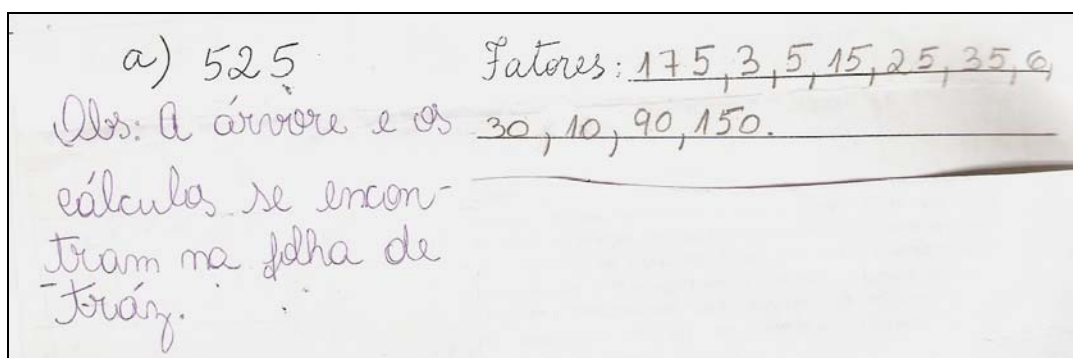 a) 525
Obs: A árvore e os
cálculos se encon-
tram na folha de
tráz.
Fatores: 175, 3, 5, 15, 25, 35, 6,
30, 10, 90, 150.